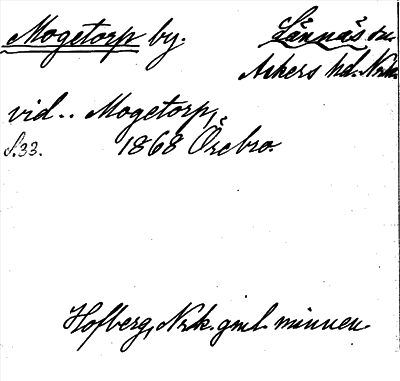 Mogetorp by. Lännäs sn.
Askers hd. Nrk.
vid.. Mogetorp,
S.33. 1868 Örebro.
Hofberg, Nrk. gml. minnen.